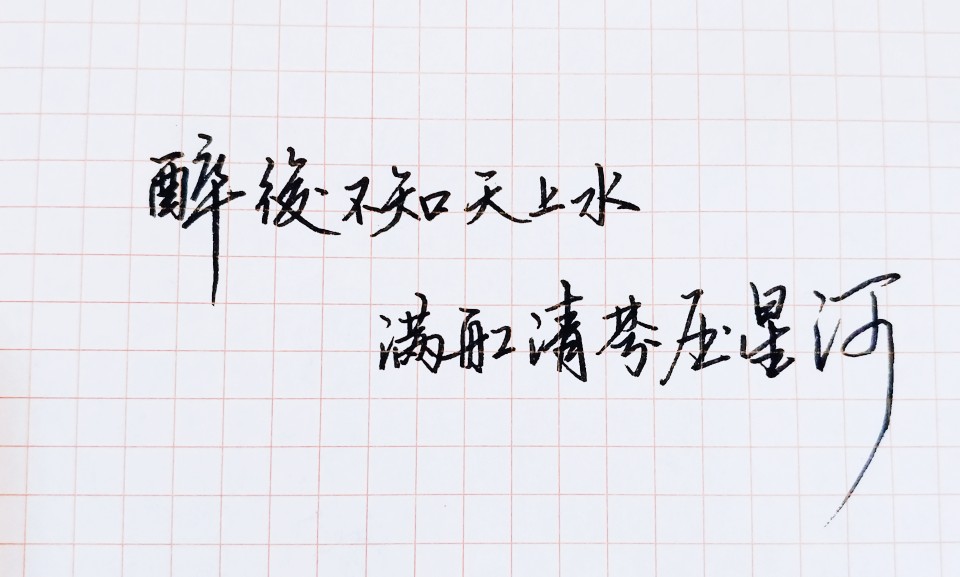 醉後不知天上水
满船清梦压星河